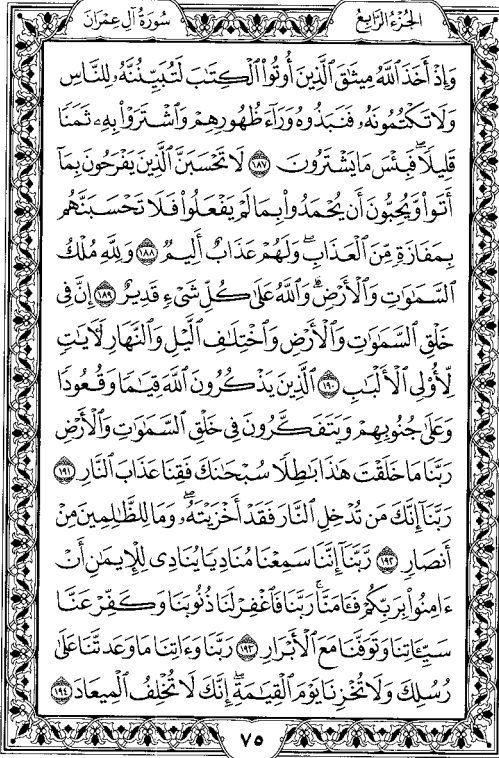 الجزء الرابع
سورة آل عمران
وَإِذْ أَخَذَ ٱللَّهُ مِيثَٰقَ ٱلَّذِينَ أُوتُوا۟ ٱلْكِتَٰبَ لَتُبَيِّنُنَّهُۥ لِلنَّاسِ
وَلَا تَكْتُمُونَهُۥ فَنَبَذُوهُ وَرَآءَ ظُهُورِهِمْ وَٱشْتَرَوْا۟ بِهِۦ ثَمَنًا
قَلِيلًا ۖ فَبِئْسَ مَا يَشْتَرُونَ ١٨٧ لَا تَحْسَبَنَّ ٱلَّذِينَ يَفْرَحُونَ بِمَآ
أَتَوا۟ وَّيُحِبُّونَ أَن يُحْمَدُوا۟ بِمَا لَمْ يَفْعَلُوا۟ فَلَا تَحْسَبَنَّهُم
بِمَفَازَةٍ مِّنَ ٱلْعَذَابِ ۖ وَلَهُمْ عَذَابٌ أَلِيمٌ ١٨٨ وَلِلَّهِ مُلْكُ
ٱلسَّمَٰوَٰتِ وَٱلْأَرْضِ ۗ وَٱللَّهُ عَلَىٰ كُلِّ شَىْءٍ قَدِيرٌ ١٨٩ إِنَّ فِى
خَلْقِ ٱلسَّمَٰوَٰتِ وَٱلْأَرْضِ وَٱخْتِلَٰفِ ٱلَّيْلِ وَٱلنَّهَارِ لَءَايَٰتٍ
لِّأُو۟لِى ٱلْأَلْبَٰبِ ١٩٠ ٱلَّذِينَ يَذْكُرُونَ ٱللَّهَ قِيَٰمًا وَقُعُودًا
وَعَلَىٰ جُنُوبِهِمْ وَيَتَفَكَّرُونَ فِى خَلْقِ ٱلسَّمَٰوَٰتِ وَٱلْأَرْضِ
رَبَّنَا مَا خَلَقْتَ هَٰذَا بَٰطِلًا سُبْحَٰنَكَ فَقِنَا عَذَابَ ٱلنَّارِ ١٩١
رَبَّنَآ إِنَّكَ مَن تُدْخِلِ ٱلنَّارَ فَقَدْ أَخْزَيْتَهُۥ ۖ وَمَا لِلظَّٰلِمِينَ مِنْ
أَنصَارٍ ١٩٢ رَّبَّنَآ إِنَّنَا سَمِعْنَا مُنَادِيًا يُنَادِى لِلْإِيمَٰنِ أَنْ
ءَامِنُوا۟ بِرَبِّكُمْ فَـَٔامَنَّا ۚ رَبَّنَا فَٱغْفِرْ لَنَا ذُنُوبَنَا وَكَفِّرْ عَنَّا
سَيِّـَٔاتِنَا وَتَوَفَّنَا مَعَ ٱلْأَبْرَارِ ١٩٣ رَبَّنَا وَءَاتِنَا مَا وَعَدتَّنَا عَلَىٰ
رُسُلِكَ وَلَا تُخْزِنَا يَوْمَ ٱلْقِيَٰمَةِ ۗ إِنَّكَ لَا تُخْلِفُ ٱلْمِيعَادَ ١٩٤
٧٥